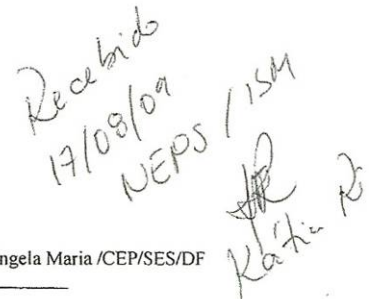 Recebido
17/08/09
NEPS / ISM
Kátia R
ngela Maria /CEP/SES/DF